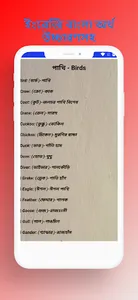 ইংরেজি বাংলা অর্থ
উচ্চারণসহ
পাখি - Birds
Bird (বার্ড)- পাখি
Crow (ক্রো)- কাক
Coot (কুট) -জলচর পাখি বিশেষ
Crane (ক্রেন) - সারস
Cuckoo (কুকু) - কোকিল
Chicken (চিকেন)- মুরগির বাচ্চা
Duck (ডাক) - হাঁস
Dove (ডোভ)- ঘুঘু
- Diver (ডাইভার)- পানকৌড়ি
- Drake (ড্রেক) - পাতি হাঁস
- Eagle (ঈগল) - ঈগল পাখি
- Feather (ফেদার) - পালক
- Goose (গুজ) - রাজহংসী
- Gull (গাল) -
- Gander (গ্যান্ডার) - রাজহাঁস